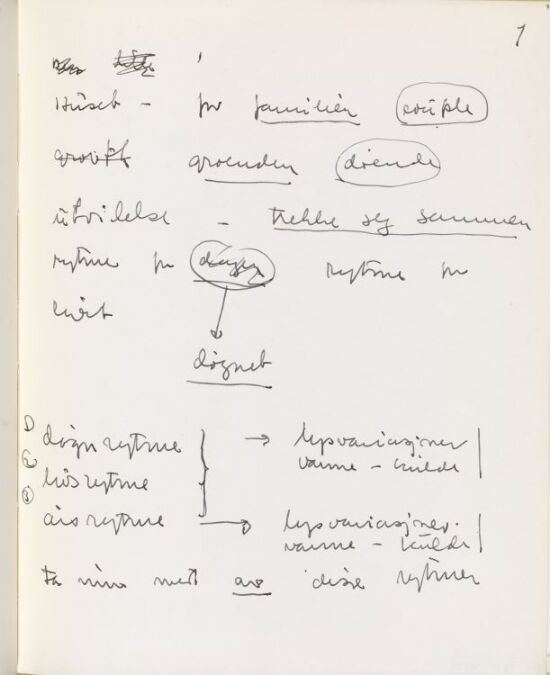 1
Huset – for familien couple
groenden døende
utvidelse – trekke seg sammen
rytme for dagen rytme for
livet
døgnet
1) døgnrytme → lysvariasjoner
varme – kulde
2) livsrytme
3) årsrytme → lysvariasjoner.
varme – kulde
av disse rytmer